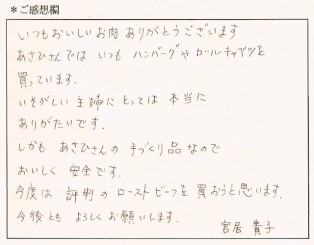 *ご感想欄
いつもおいしいお肉ありがとうございます
あさひさんでは いつも ハンバーグや ロールキャベツを
買っています.
いそがしい 主婦に とっては 本当に
ありがたいです.
しかも あさひさんの 手づくり品なので
おいしく 安全です.
今度は 評判の ローストビーフを 買おうと思います.
今後とも よろしくお願いします.
宮居 貴子